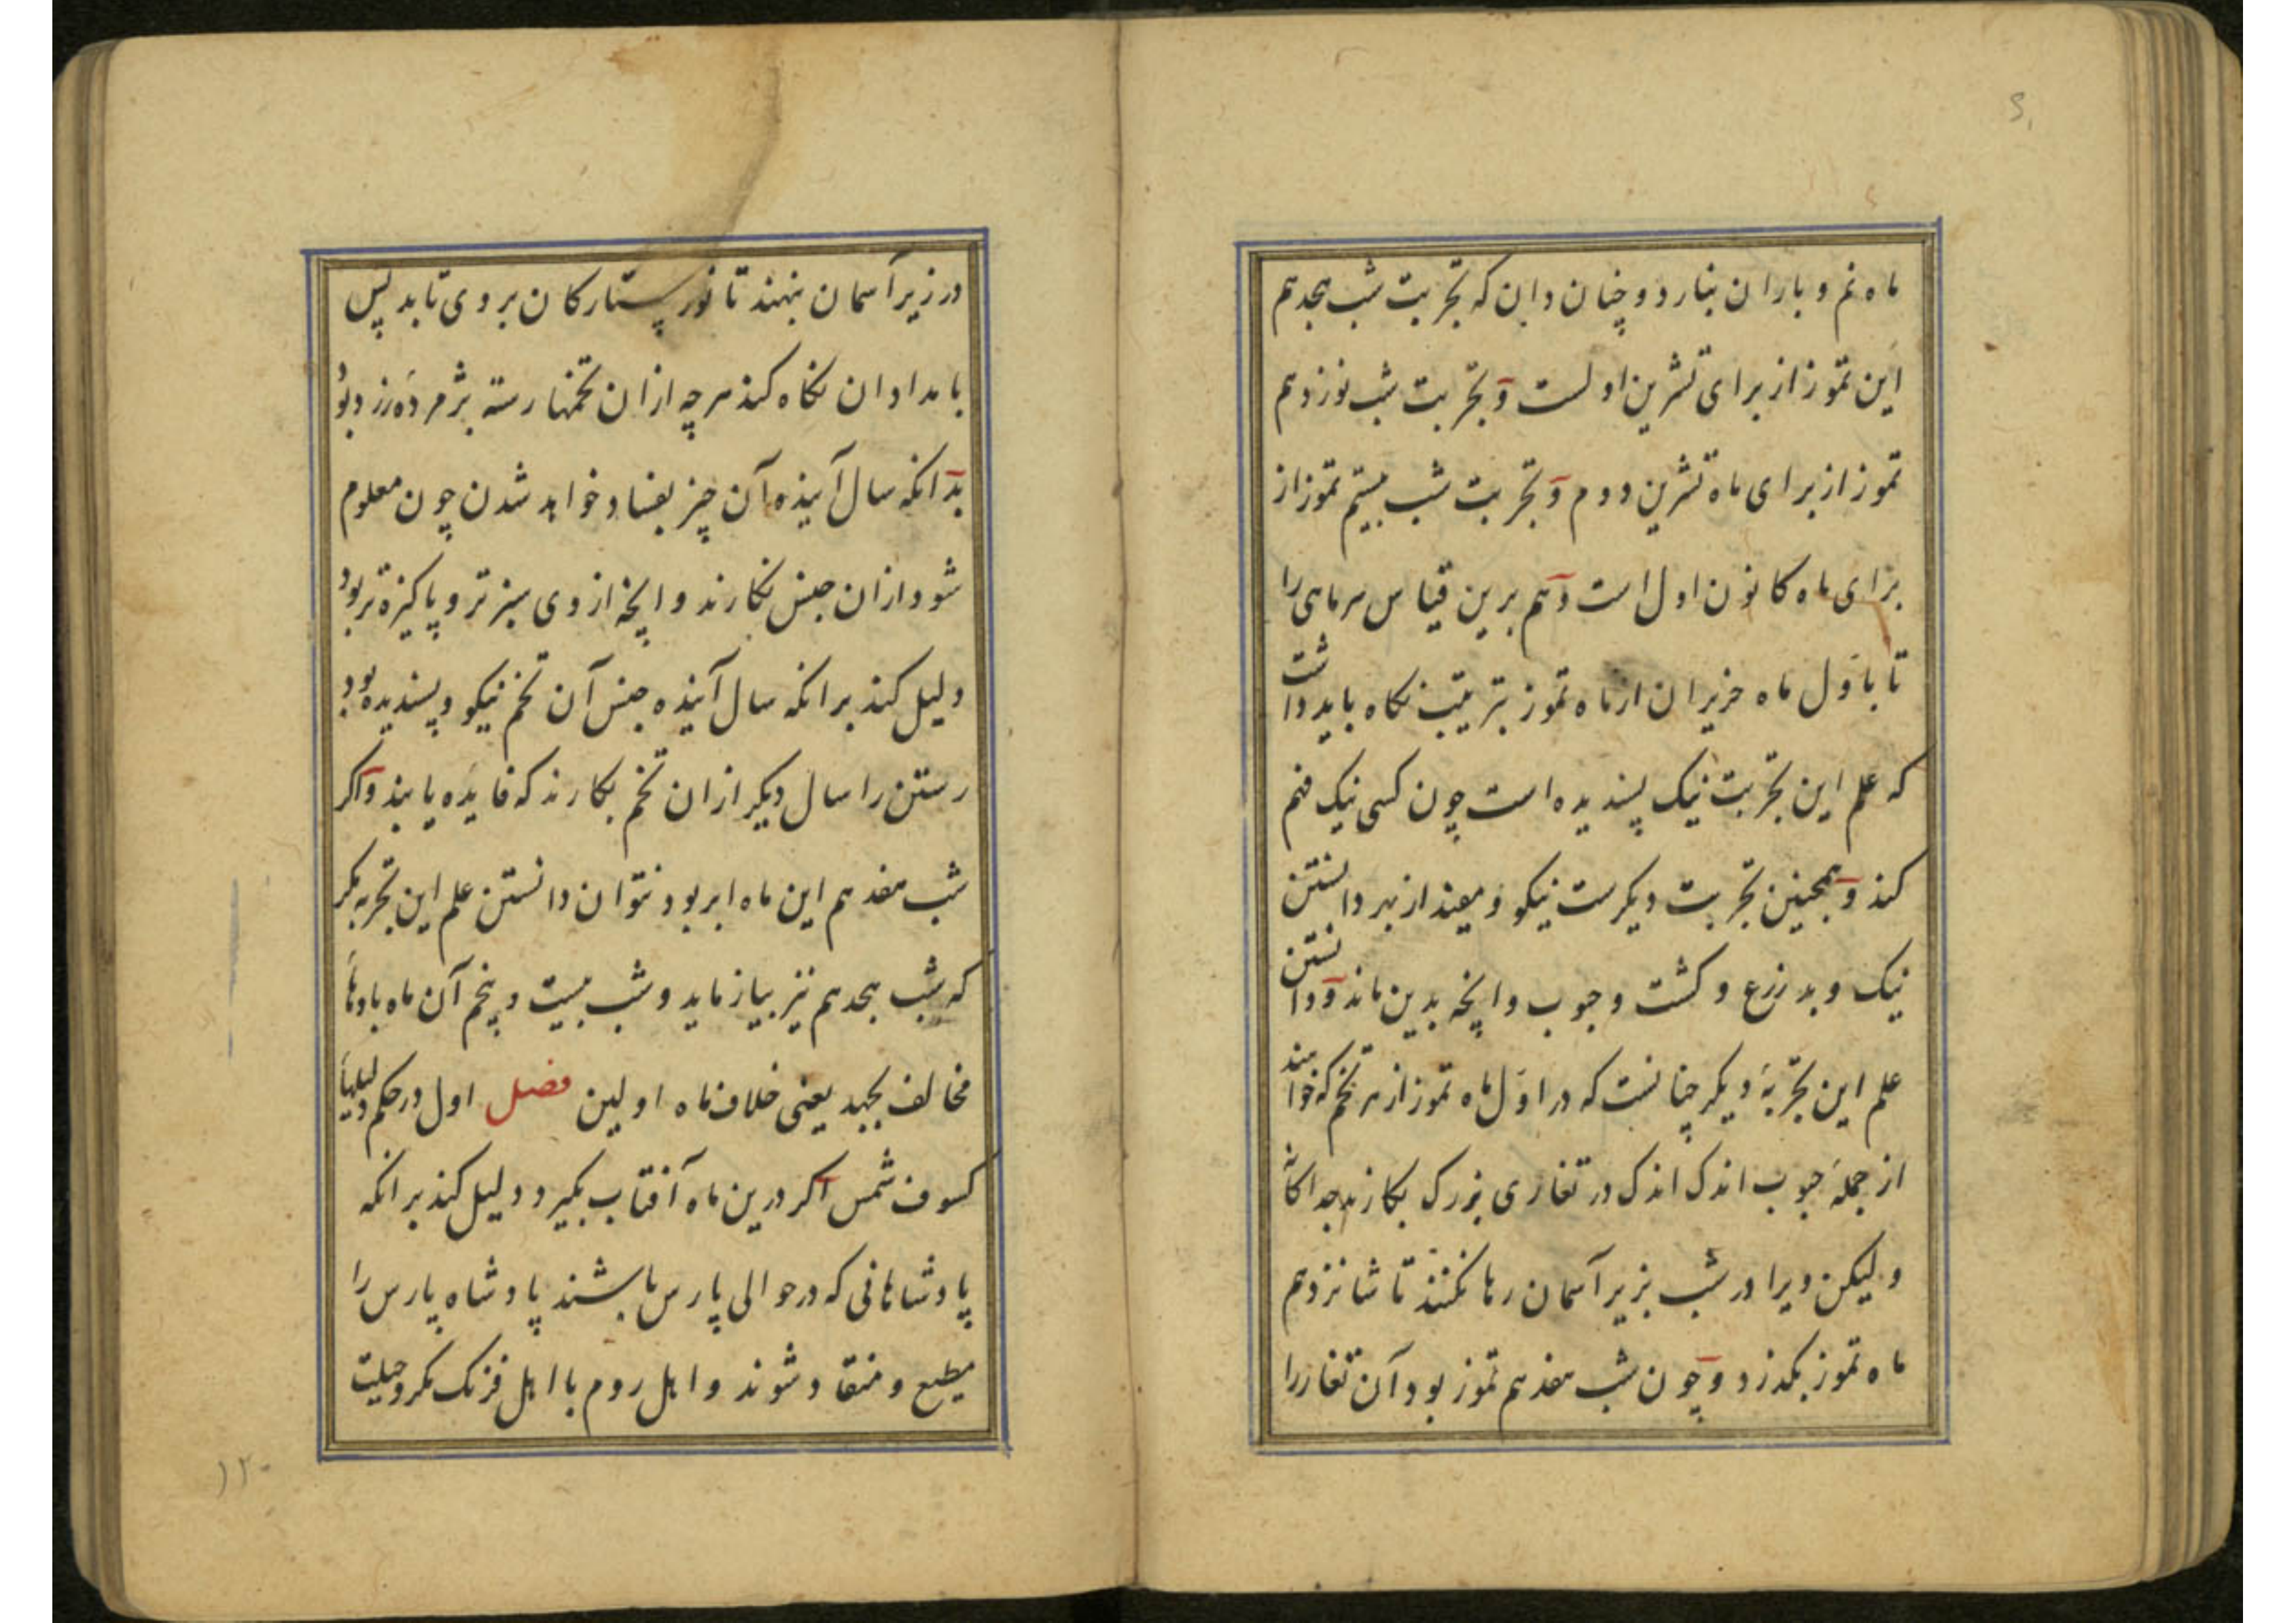 ماه نم و باران بنارد و چنان دان که تجربت شب هجدهم
این تموز از برای تشرین اولست و تجربت شب نوزدهم
تموز از برای ماه تشرین دوم و تجربت شب بیستم تموز از
برای ماه کانون اول است و هم برین قیاس هر ماهی را
تا باول ماه حزیران از ماه تموز بترتیب نکاه باید داشت
که علم این تجربت نیک پسندیده است چون کسی نیک فهم
کند و همچنین تجربت دیکرست نیکو و مفید از بهر دانستن
نیک و بد زرع و کشت و حبوب و انچه بدین ماند و دانستن
علم این تجربهٔ دیکر چنانست که در اول ماه تموز از هر تخم که خواهند
از جملهٔ حبوب اندک اندک در تغاری بزرک بکارند جداکانه
ولیکن ویرا در شب بزیر آسمان رها نکنند تا شانزدهم
ماه تموز بکذرد و چون شب هفدهم تموز بود آن تغار را
در زیر آسمان بنهند تا نور ستارکان بر وی تابد پس
بامدادان نکاه کند هرچه ازان تخمها رسته پژمرده و زرد بود
بدانکه سال آینده آن چیز بفساد خواهد شدن چون معلوم
شود ازان جنس نکارند و انچه از وی سبزتر و پاکیزه تر بود
دلیل کند برانکه سال آینده جنس آن تخم نیکو و پسندیده بود
رستن را سال دیکر ازان تخم بکارند که فایده یابند و اکر
شب هفدهم این ماه ابر بود نتوان دانستن علم این تجربه مکر
که شب هجدهم نیز بیازماید و شب بیست و پنجم آن ماه بادها
مخالف بجهد یعنی خلاف ماه اولین فصل اول در حکم دلیلها
کسوف شمس اکر درین ماه آفتاب بکیرد دلیل کند برانکه
پادشاهانی که در حوالی پارس باشند پادشاه پارس را
مطیع و منقاد شوند و اهل روم با اهل فرنک مکر و حیلت
۱۲۰